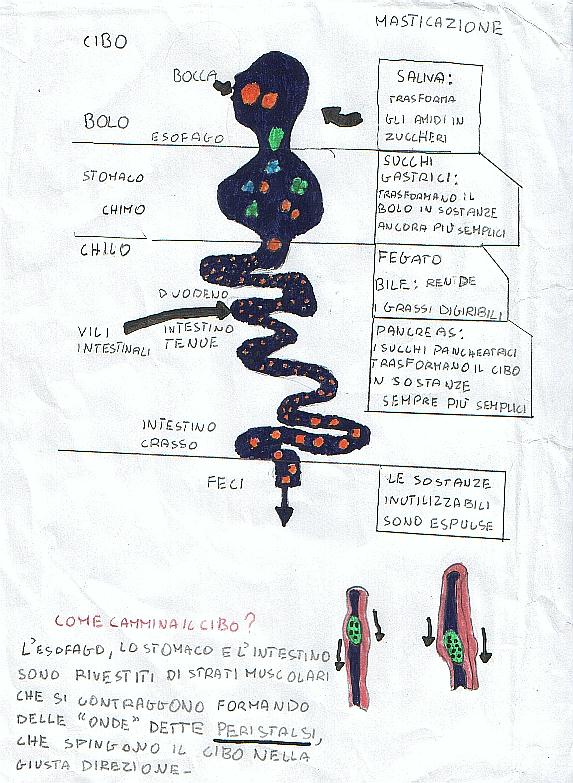 MASTICAZIONE
CIBO
BOCCA
SALIVA:
TRASFORMA
GLI AMIDI IN
ZUCCHERI
BOLO
ESOFAGO
SUCCHI
GASTRICI:
TRASFORMANO IL
BOLO IN SOSTANZE
ANCORA PIÙ SEMPLICI
STOMACO
CHIMO
CHILO
FEGATO
BILE: RENDE
I GRASSI DIGIRIBILI
DUODENO
VILI
INTESTINALI
INTESTINO
TENUE
PANCREAS:
I SUCCHI PANCHEATRICI
TRASFORMANO IL CIBO
IN SOSTANZE
SEMPRE PIÙ SEMPLICI
INTESTINO
CRASSO
FECI
LE SOSTANZE
INUTILIZZABILI
SONO ESPULSE
COME CAMMINA IL CIBO?
L'ESOFAGO, LO STOMACO E L'INTESTINO
SONO RIVESTITI DI STRATI MUSCOLARI
CHE SI CONTRAGGONO FORMANDO
DELLE "ONDE" DETTE PERISTALSI,
CHE SPINGONO IL CIBO NELLA
GIUSTA DIREZIONE-